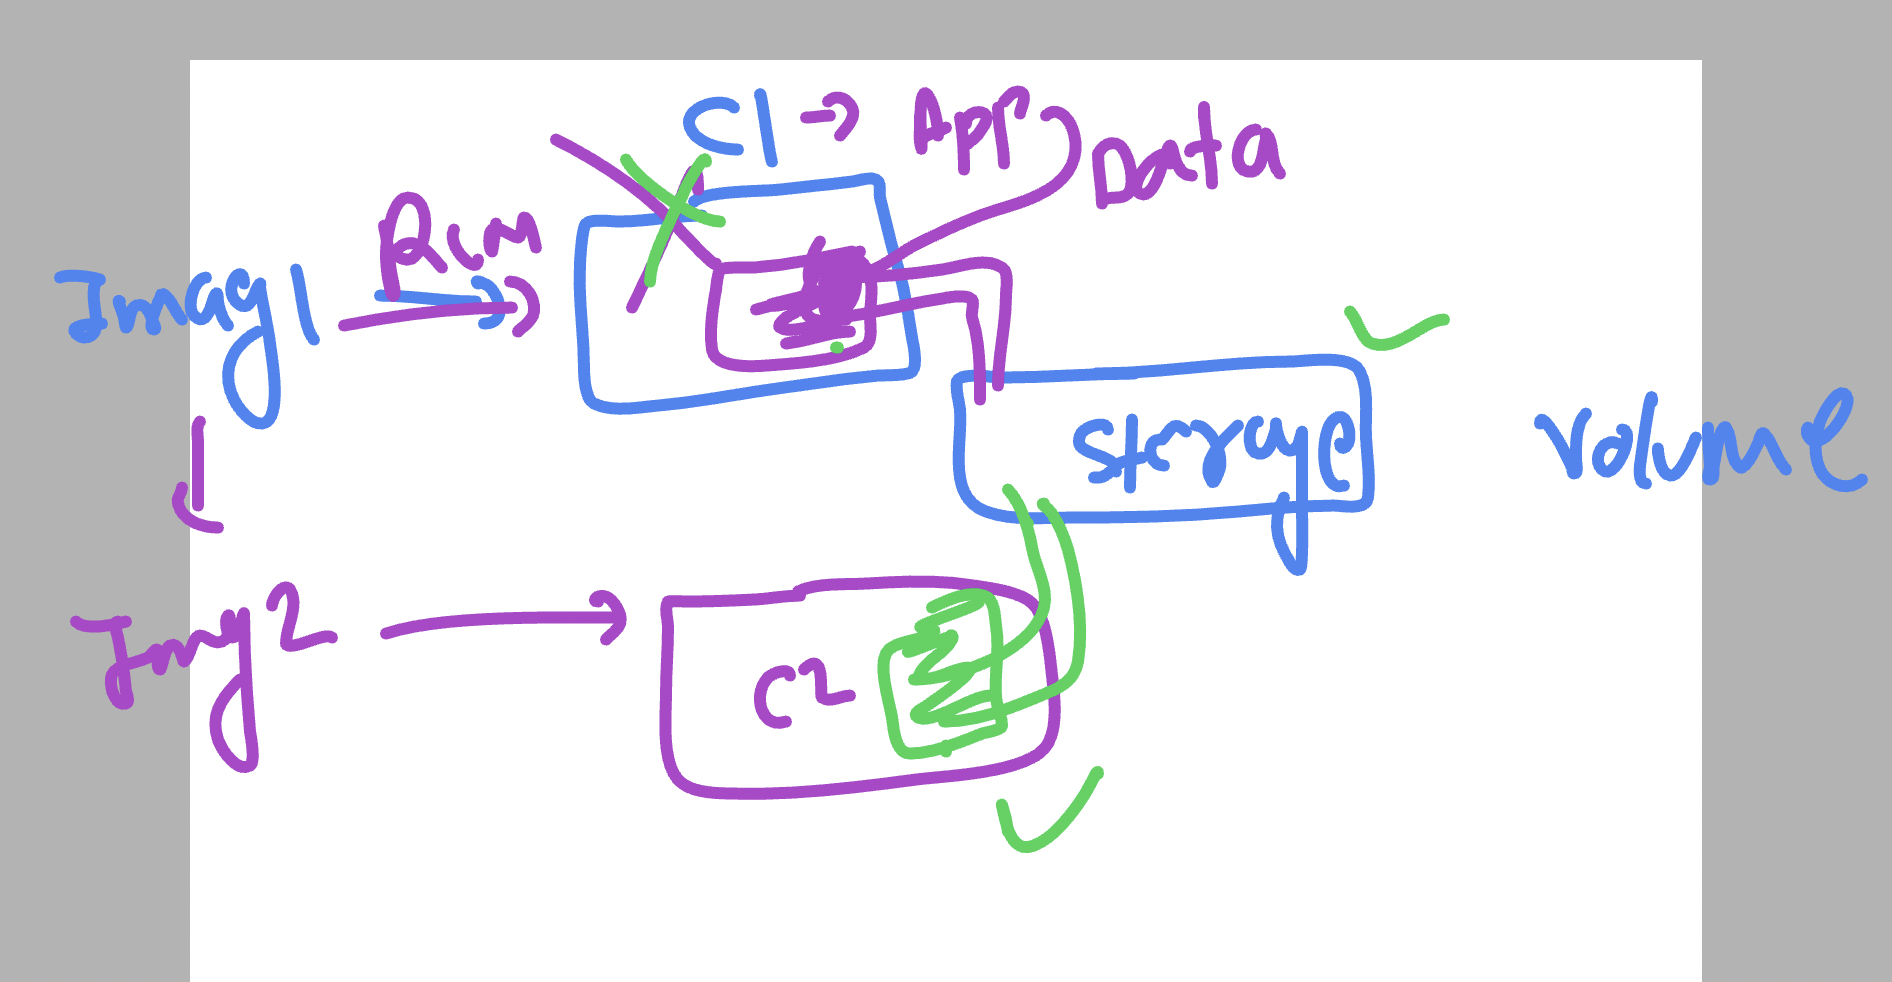 C1 → App Data
Run
Imag1
Storage
Volume
Img2
C2